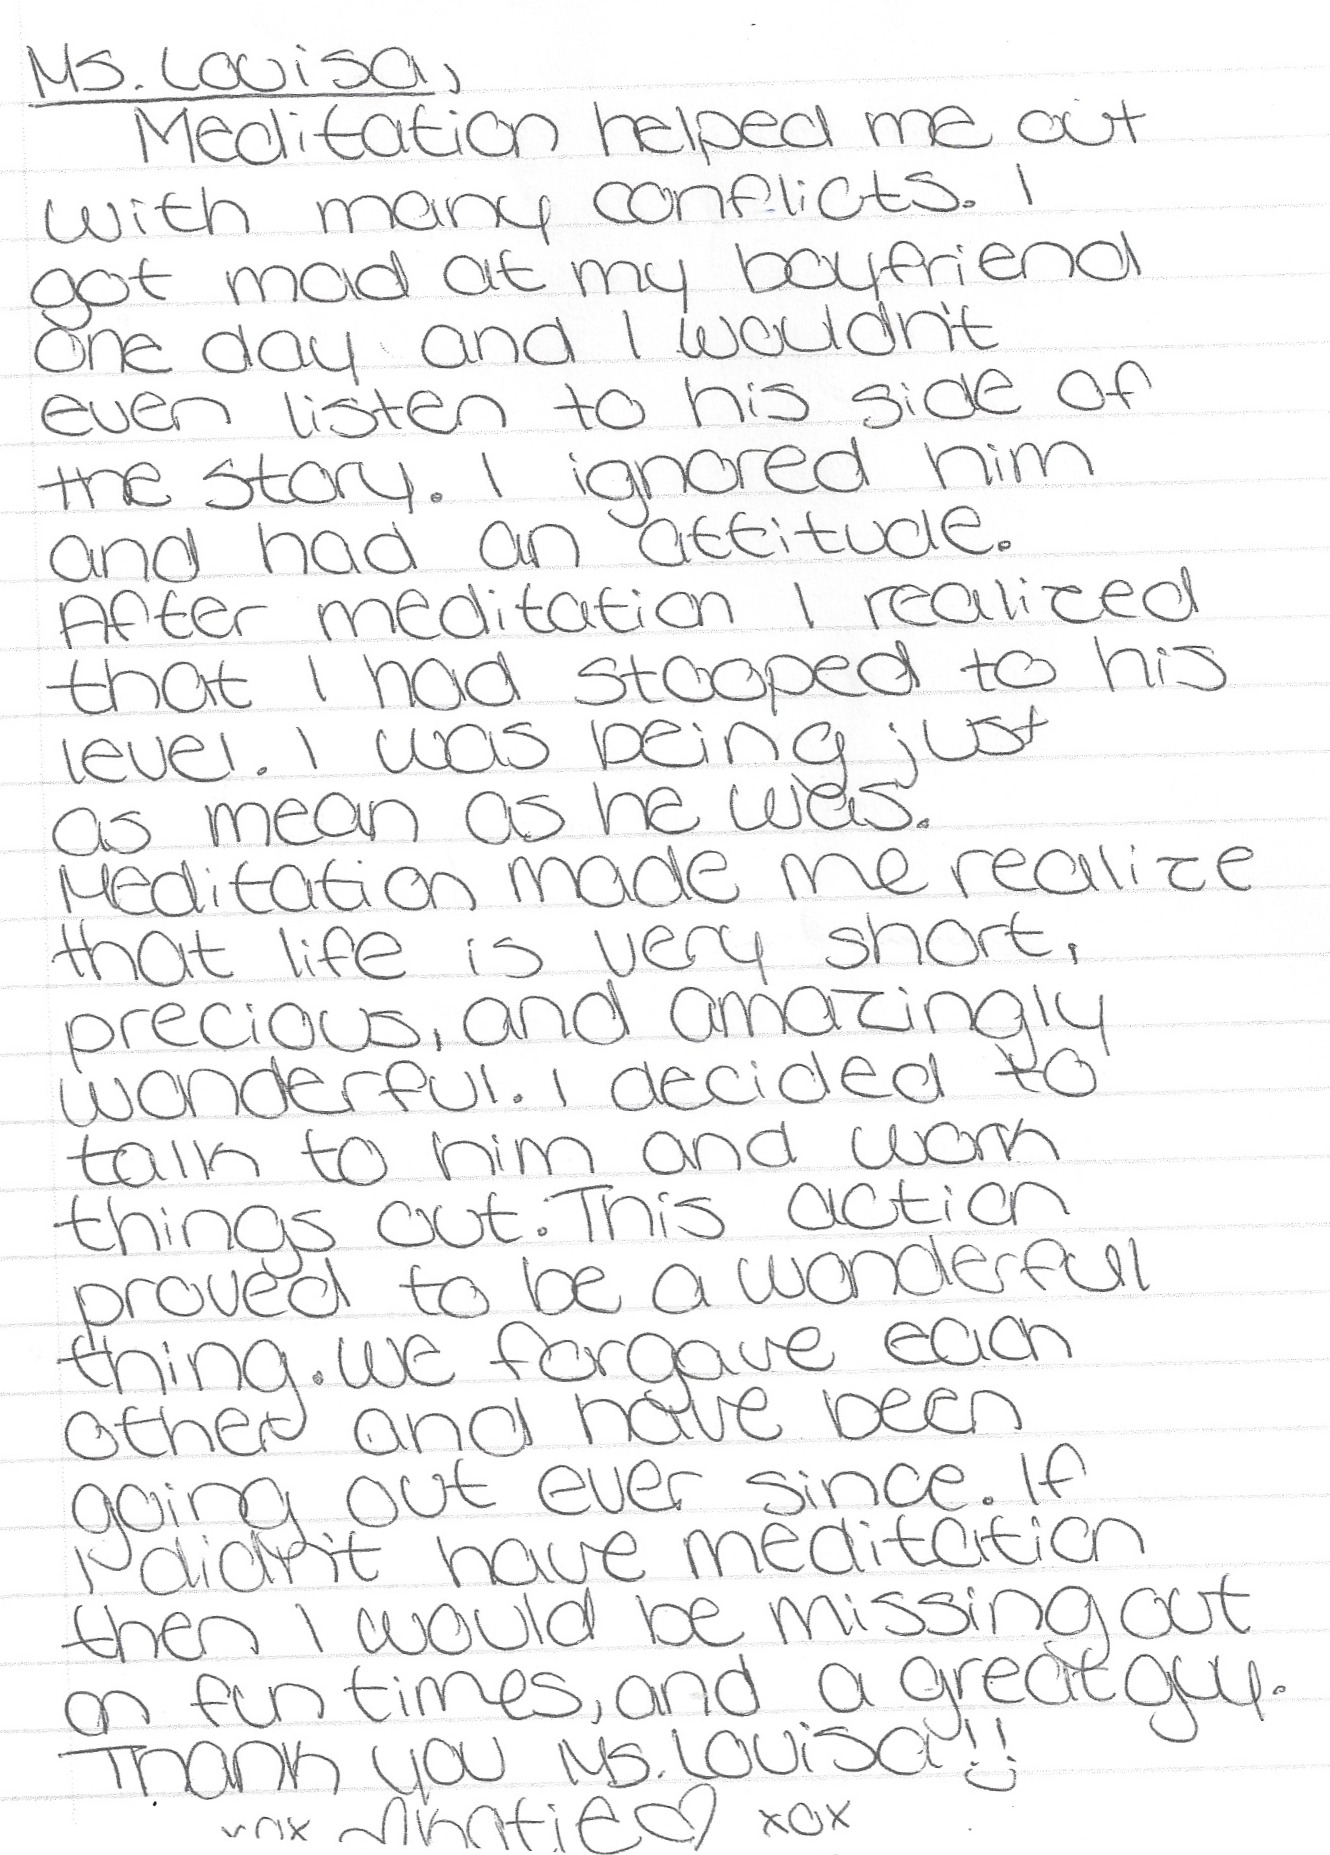 Ms. Louisa,
Meditation helped me out
with many conflicts. I
got mad at my boyfriend
one day and I wouldn't
even listen to his side of
the story. I ignored him
and had an attitude.
After meditation I realized
that I had stooped to his
level. I was being just
as mean as he was.
Meditation made me realize
that life is very short,
precious, and amazingly
wonderful. I decided to
talk to him and work
things out. This action
proved to be a wonderful
thing. We forgave each
other and have been
going out ever since. If
I didn't have meditation
then I would be missing out
on fun times, and a great guy.
Thank you Ms. Louisa!!
xox Katie♡ xox